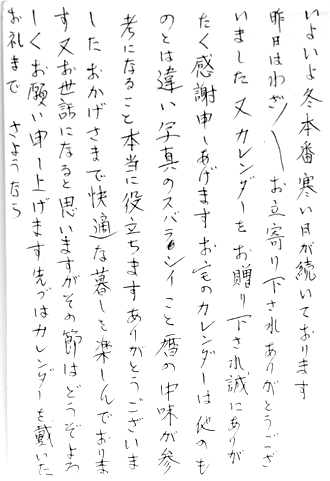 いよいよ冬本番寒い日が続いております
昨日はわざ〳〵お立寄り下されありがとうござ
いました又カレンダーをお贈り下され誠にありが
たく感謝申しあげますお宅のカレンダーは他のも
のとは違い写真のスバラシイこと暦の中味が参
考になること本当に役立ちますありがとうございま
したおかげさまで快適な暮しを楽しんでおりま
す又お世話になると思いますがその節はどうぞよろ
しくお願い申し上げます先づはカレンダーを戴いた
お礼まで さようなら